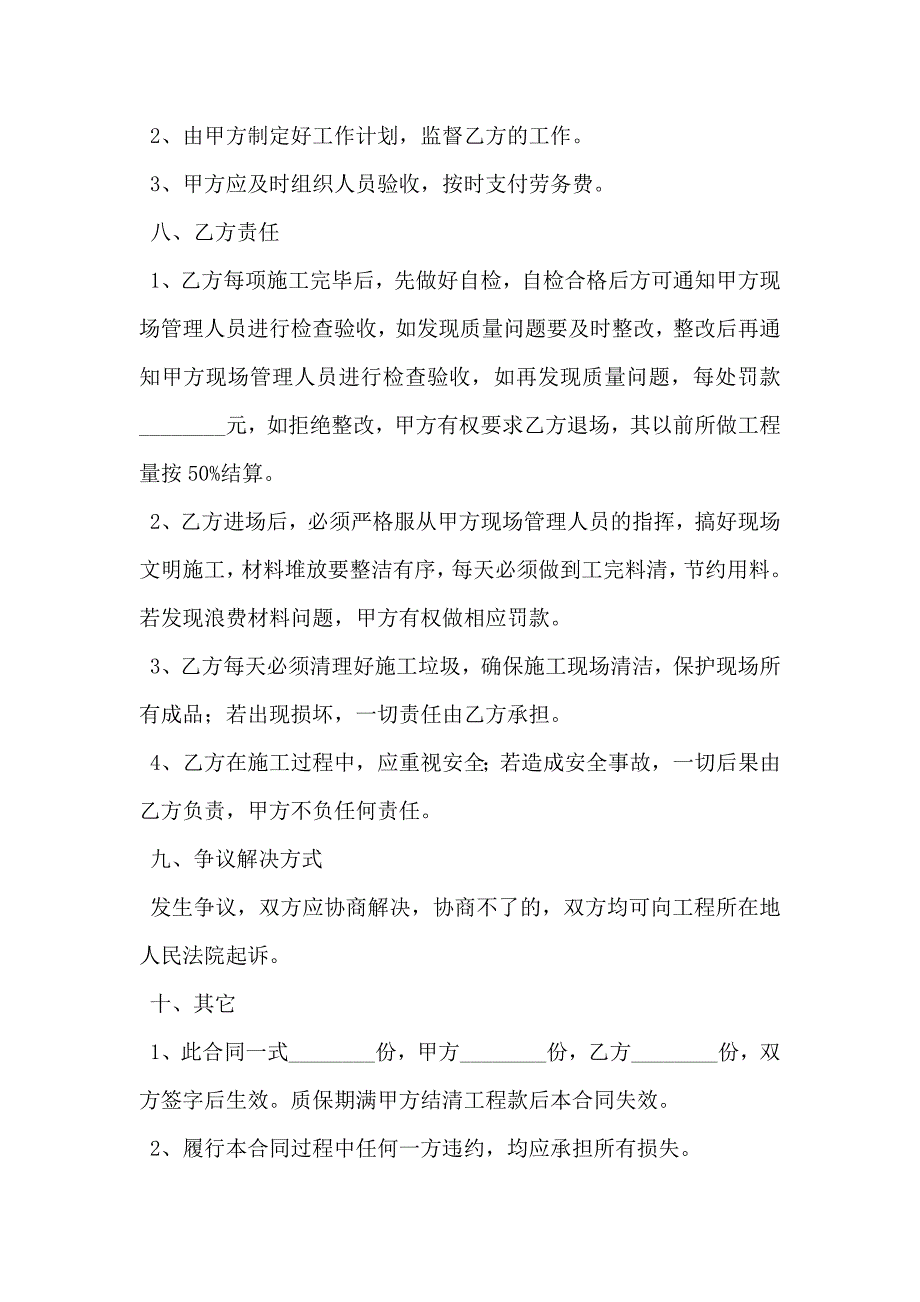 2、由甲方制定好工作计划，监督乙方的工作。
3、甲方应及时组织人员验收，按时支付劳务费。
八、乙方责任
1、乙方每项施工完毕后，先做好自检，自检合格后方可通知甲方现
场管理人员进行检查验收，如发现质量问题要及时整改，整改后再通
知甲方现场管理人员进行检查验收，如再发现质量问题，每处罚款
________元，如拒绝整改，甲方有权要求乙方退场，其以前所做工程
量按 50%结算。
2、乙方进场后，必须严格服从甲方现场管理人员的指挥，搞好现场
文明施工，材料堆放要整洁有序，每天必须做到工完料清，节约用料。
若发现浪费材料问题，甲方有权做相应罚款。
3、乙方每天必须清理好施工垃圾，确保施工现场清洁，保护现场所
有成品；若出现损坏，一切责任由乙方承担。
4、乙方在施工过程中，应重视安全；若造成安全事故，一切后果由
乙方负责，甲方不负任何责任。
九、争议解决方式
发生争议，双方应协商解决，协商不了的，双方均可向工程所在地
人民法院起诉。
十、其它
1、此合同一式________份，甲方________份，乙方________份，双
方签字后生效。质保期满甲方结清工程款后本合同失效。
2、履行本合同过程中任何一方违约，均应承担所有损失。